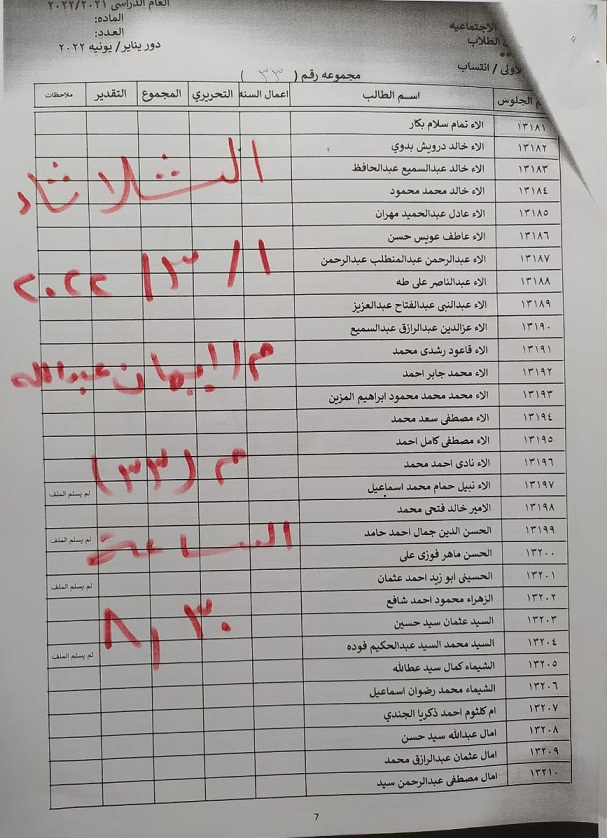 العام الدراسى ٢٠٢٢/٢٠٢١
الاجتماعيه
المادة:
الطلاب
العدد:
دور يناير/ يونيه ٢٠٢٢
اولى / انتساب
مجموعه رقم ( ٣٣ )
الجلوس اسم الطالب اعمال السنه التحريري المجموع التقدير ملاحظات
١٣١٨١ الاء تمام سلام بكار
١٣١٨٢ الاء خالد درويش بدوي
١٣١٨٣ الاء خالد عبدالسميع عبدالحافظ
١٣١٨٤ الاء خالد محمد محمود
١٣١٨٥ الاء عادل عبدالحميد مهران
١٣١٨٦ الاء عاطف عويس حسن
١٣١٨٧ الاء عبدالرحمن عبدالمنطلب عبدالرحمن
١٣١٨٨ الاء عبدالناصر على طه
١٣١٨٩ الاء عبدالنبى عبدالفتاح عبدالعزيز
١٣١٩٠ الاء عزالدين عبدالرازق عبدالسميع
١٣١٩١ الاء قاعود رشدى محمد
١٣١٩٢ الاء محمد جابر احمد
١٣١٩٣ الاء محمد محمد محمود ابراهيم المزين
١٣١٩٤ الاء مصطفى سعد محمد
١٣١٩٥ الاء مصطفى كامل احمد
١٣١٩٦ الاء نادى احمد محمد
١٣١٩٧ الاء نبيل حمام محمد اسماعيل لم يسلم الملف
١٣١٩٨ الامير خالد فتحى محمد
١٣١٩٩ الحسن الدين جمال احمد حامد لم يسلم الملف
١٣٢٠٠ الحسن ماهر فوزى على
١٣٢٠١ الحسينى ابو زيد احمد عثمان لم يسلم الملف
١٣٢٠٢ الزهراء محمود احمد شافع
١٣٢٠٣ السيد عثمان سيد حسين
١٣٢٠٤ السيد محمد السيد عبدالحكيم فوده لم يسلم الملف
١٣٢٠٥ الشيماء كمال سيد عطالله
١٣٢٠٦ الشيماء محمد رضوان اسماعيل
١٣٢٠٧ ام كلثوم احمد ذكريا الجندي
١٣٢٠٨ امال عبدالله سيد حسن
١٣٢٠٩ امال عثمان عبدالرازق محمد
١٣٢١٠ امال مصطفى عبدالرحمن سيد
الثلاثاء
١/ ٣/ ٢٠٢٢
م/ ايمان عبدالله
م (٣٣)
الساعة
٨,٣٠
7